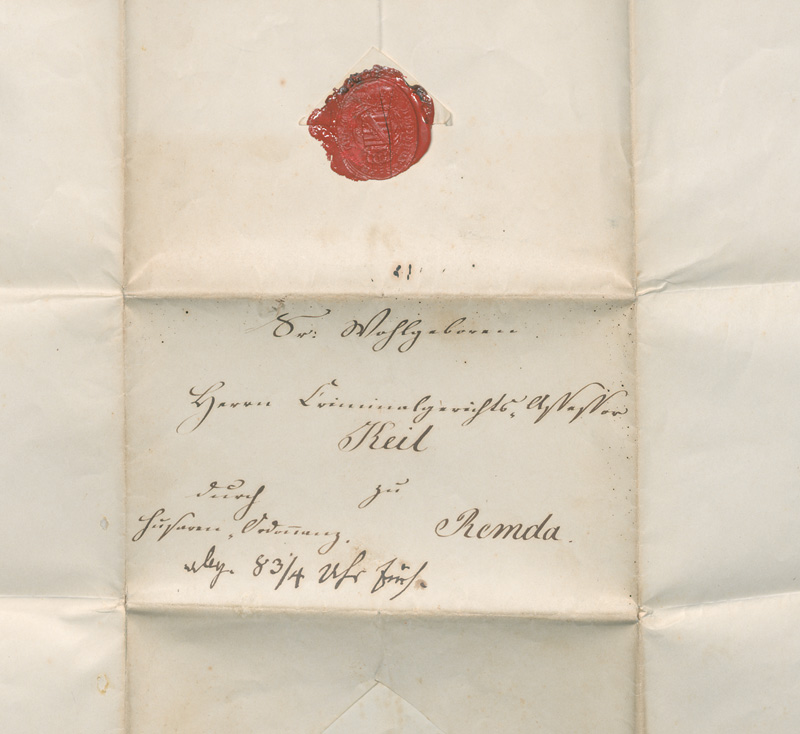 Sr: Wohlgeboren
Herrn Criminalgerichts-Assessor
Keil
durch zu
Husaren-Ordonnanz. Remda.
abg. 8 3/4 Uhr früh.